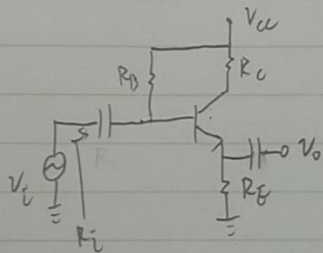 Vcc
RB
RC
Vo
Vi
RE
Ri